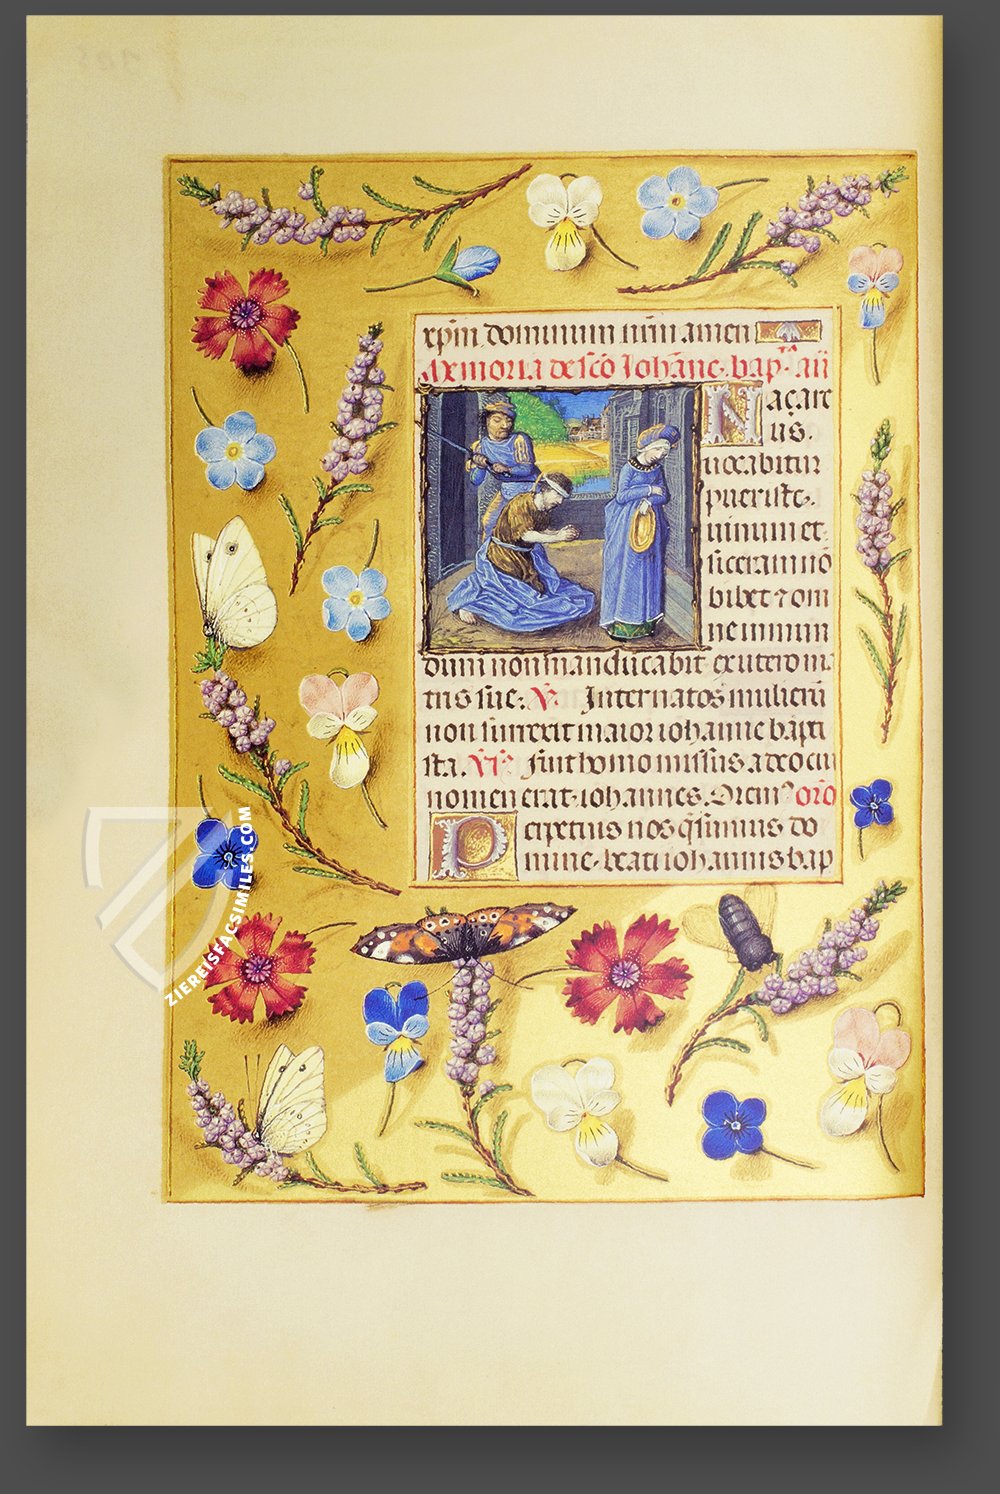 xp̄m dominum nr̄m amen
Memoria de sc̄o Iohanne. bap.ta an̄
Naçare
us.
uocabitur
puer iste.
uinum et
siceram nō
bibet ⁊ om
ne immun
dum non manducabit ex utero ma
tris sue. V. Inter natos mulierū
non surrexit maior iohanne bapti
sta. Fuit homo missus a deo cui
nomen erat iohannes. Orem9 orō
Perpetuis nos q̄sumus do
mine. beati iohannis bap
ZIEREISFACSIMILES.COM